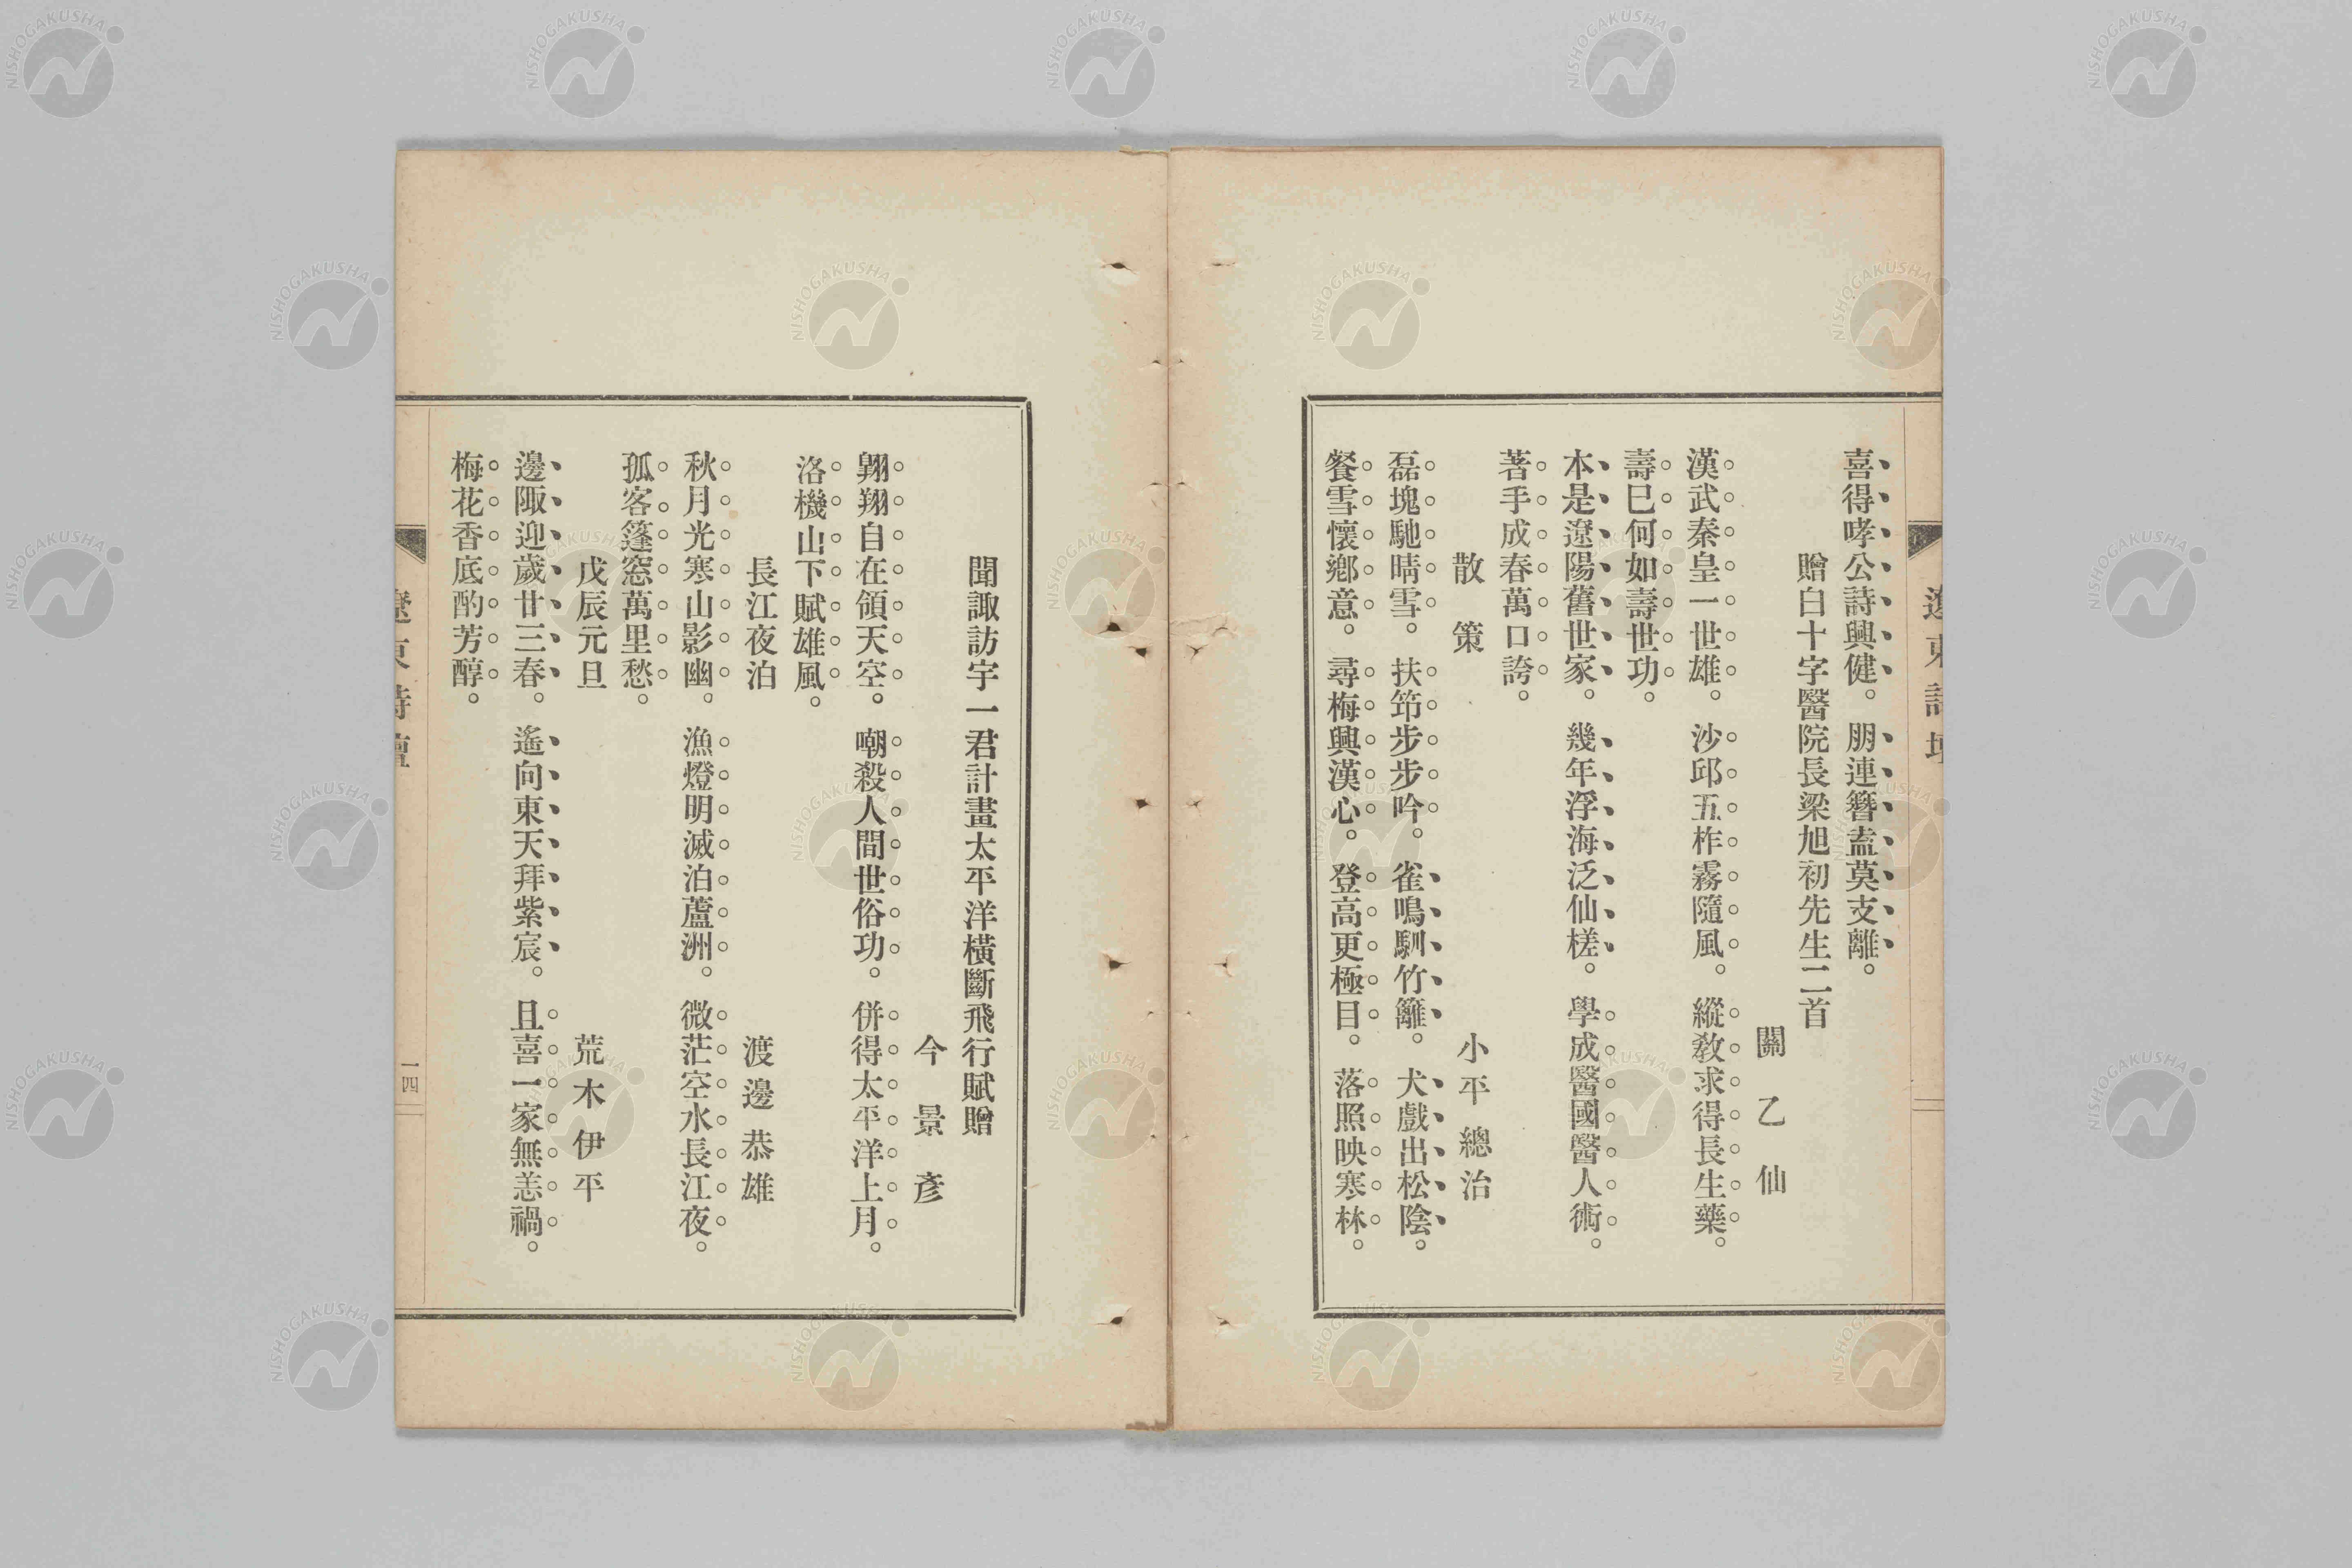 喜得哮公詩興健。朋連簪盍莫支離。
贈白十字醫院長梁旭初先生二首
關乙仙
漢武秦皇一世雄。沙邱五柞霧隨風。縱敎求得長生藥。
壽巳何如壽世功。
本是遼陽舊世家。幾年浮海泛仙槎。學成醫國醫人術。
著手成春萬口誇。
散策
小平總治
磊塊馳晴雪。扶笻步步吟。雀鳴馴竹籬。犬戲出松陰。
餐雪懷鄕意。尋梅興漢心。登高更極目。落照映寒林。
聞諏訪宇一君計畫太平洋橫斷飛行賦贈
今景彥
翺翔自在領天空。嘲殺人間世俗功。併得太平洋上月。
洛機山下賦雄風。
長江夜泊
渡邊恭雄
秋月光寒山影幽。漁燈明滅泊蘆洲。微茫空水長江夜。
孤客篷窓萬里愁。
戊辰元旦
荒木伊平
邊陬迎歲廿三春。遙向東天拜紫宸。且喜一家無恙禍。
梅花香底酌芳醇。
遼東詩壇
一四
NISHOGAKUSHA